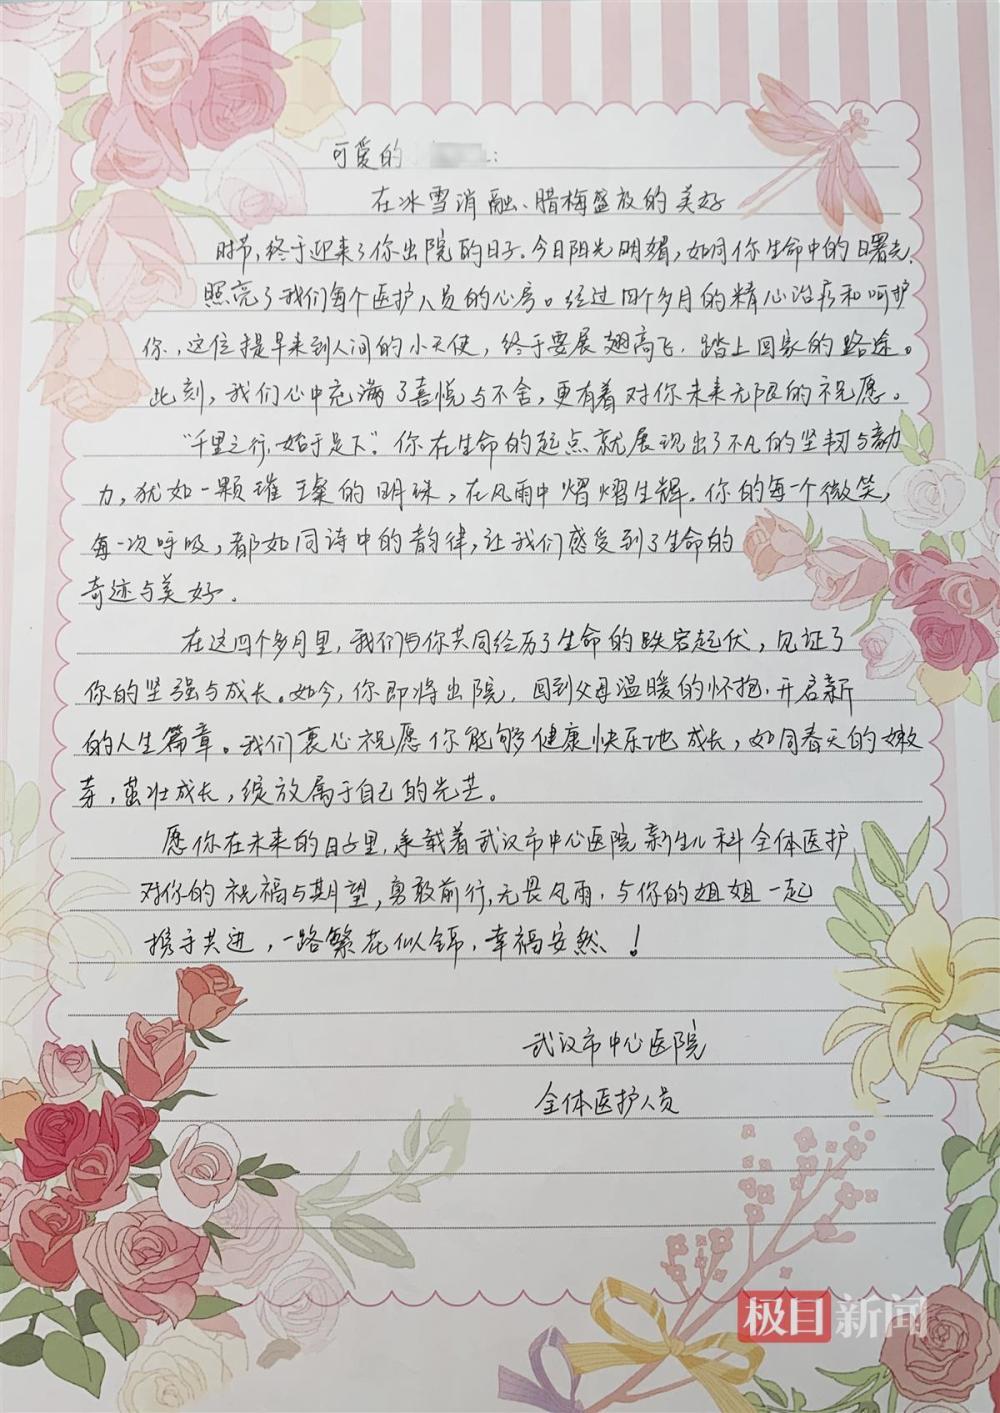 可爱的      :
在冰雪消融、腊梅盛放的美好
时节,终于迎来了你出院的日子。今日阳光明媚,如同你生命中的曙光,
照亮了我们每个医护人员的心房。经过四个多月的精心治疗和呵护
你,这位提早来到人间的小天使,终于要展翅高飞,踏上回家的路途。
此刻,我们心中充满了喜悦与不舍,更有着对你未来无限的祝愿。
“千里之行,始于足下”。你在生命的起点就展现出了不凡的坚韧与毅力
力,犹如一颗璀璨的明珠,在风雨中熠熠生辉。你的每一个微笑,
每一次呼吸,都如同诗中的韵律,让我们感受到了生命的
奇迹与美好。
在这四个多月里,我们与你共同经历了生命的跌宕起伏,见证了
你的坚强与成长。如今,你即将出院,回到父母温暖的怀抱,开启新
的人生篇章。我们衷心祝愿你能够健康快乐地成长,如同春天的嫩
芽,茁壮成长,绽放属于自己的光芒。
愿你在未来的日子里,承载着武汉市中心医院新生儿科全体医护
对你的祝福与期望,勇敢前行,无畏风雨,与你的姐姐一起
携手共进,一路繁花似锦,幸福安然!
武汉市中心医院
全体医护人员
极目新闻